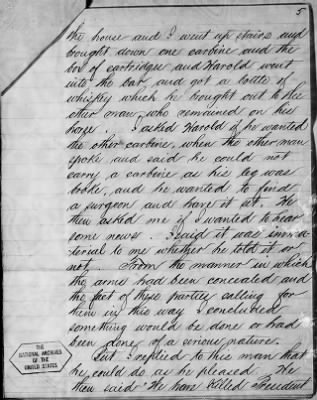 5
the house and I went up stairs and
brought down one carbine and the
box of cartridges and Harold went
into the bar and got a bottle of
whiskey which he brought out to the
other man, who remained on his
horse. I asked Harold if he wanted
the other carbine, when the other man
spoke and said he could not
carry a carbine as his leg was
broke, and he wanted to find
a surgeon and have it set. He
then asked me if I wanted to hear
some news. I said it was imma-
terial to me whether he told it or
not. From the manner in which
the arms had been concealed and
the fact of these parties calling for
them in this way I concluded
something would be done or had
been done, of a serious nature.
But I replied to this man that
he could do as he pleased. He
then said "We have killed President
THE
NATIONAL ARCHIVES
OF THE
UNITED STATES